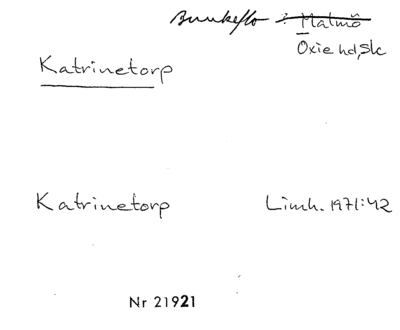 Bunkeflo : Malmö
Oxie hd, Sk
Katrinetorp
Katrinetorp Limh. 1971:42
Nr 21921